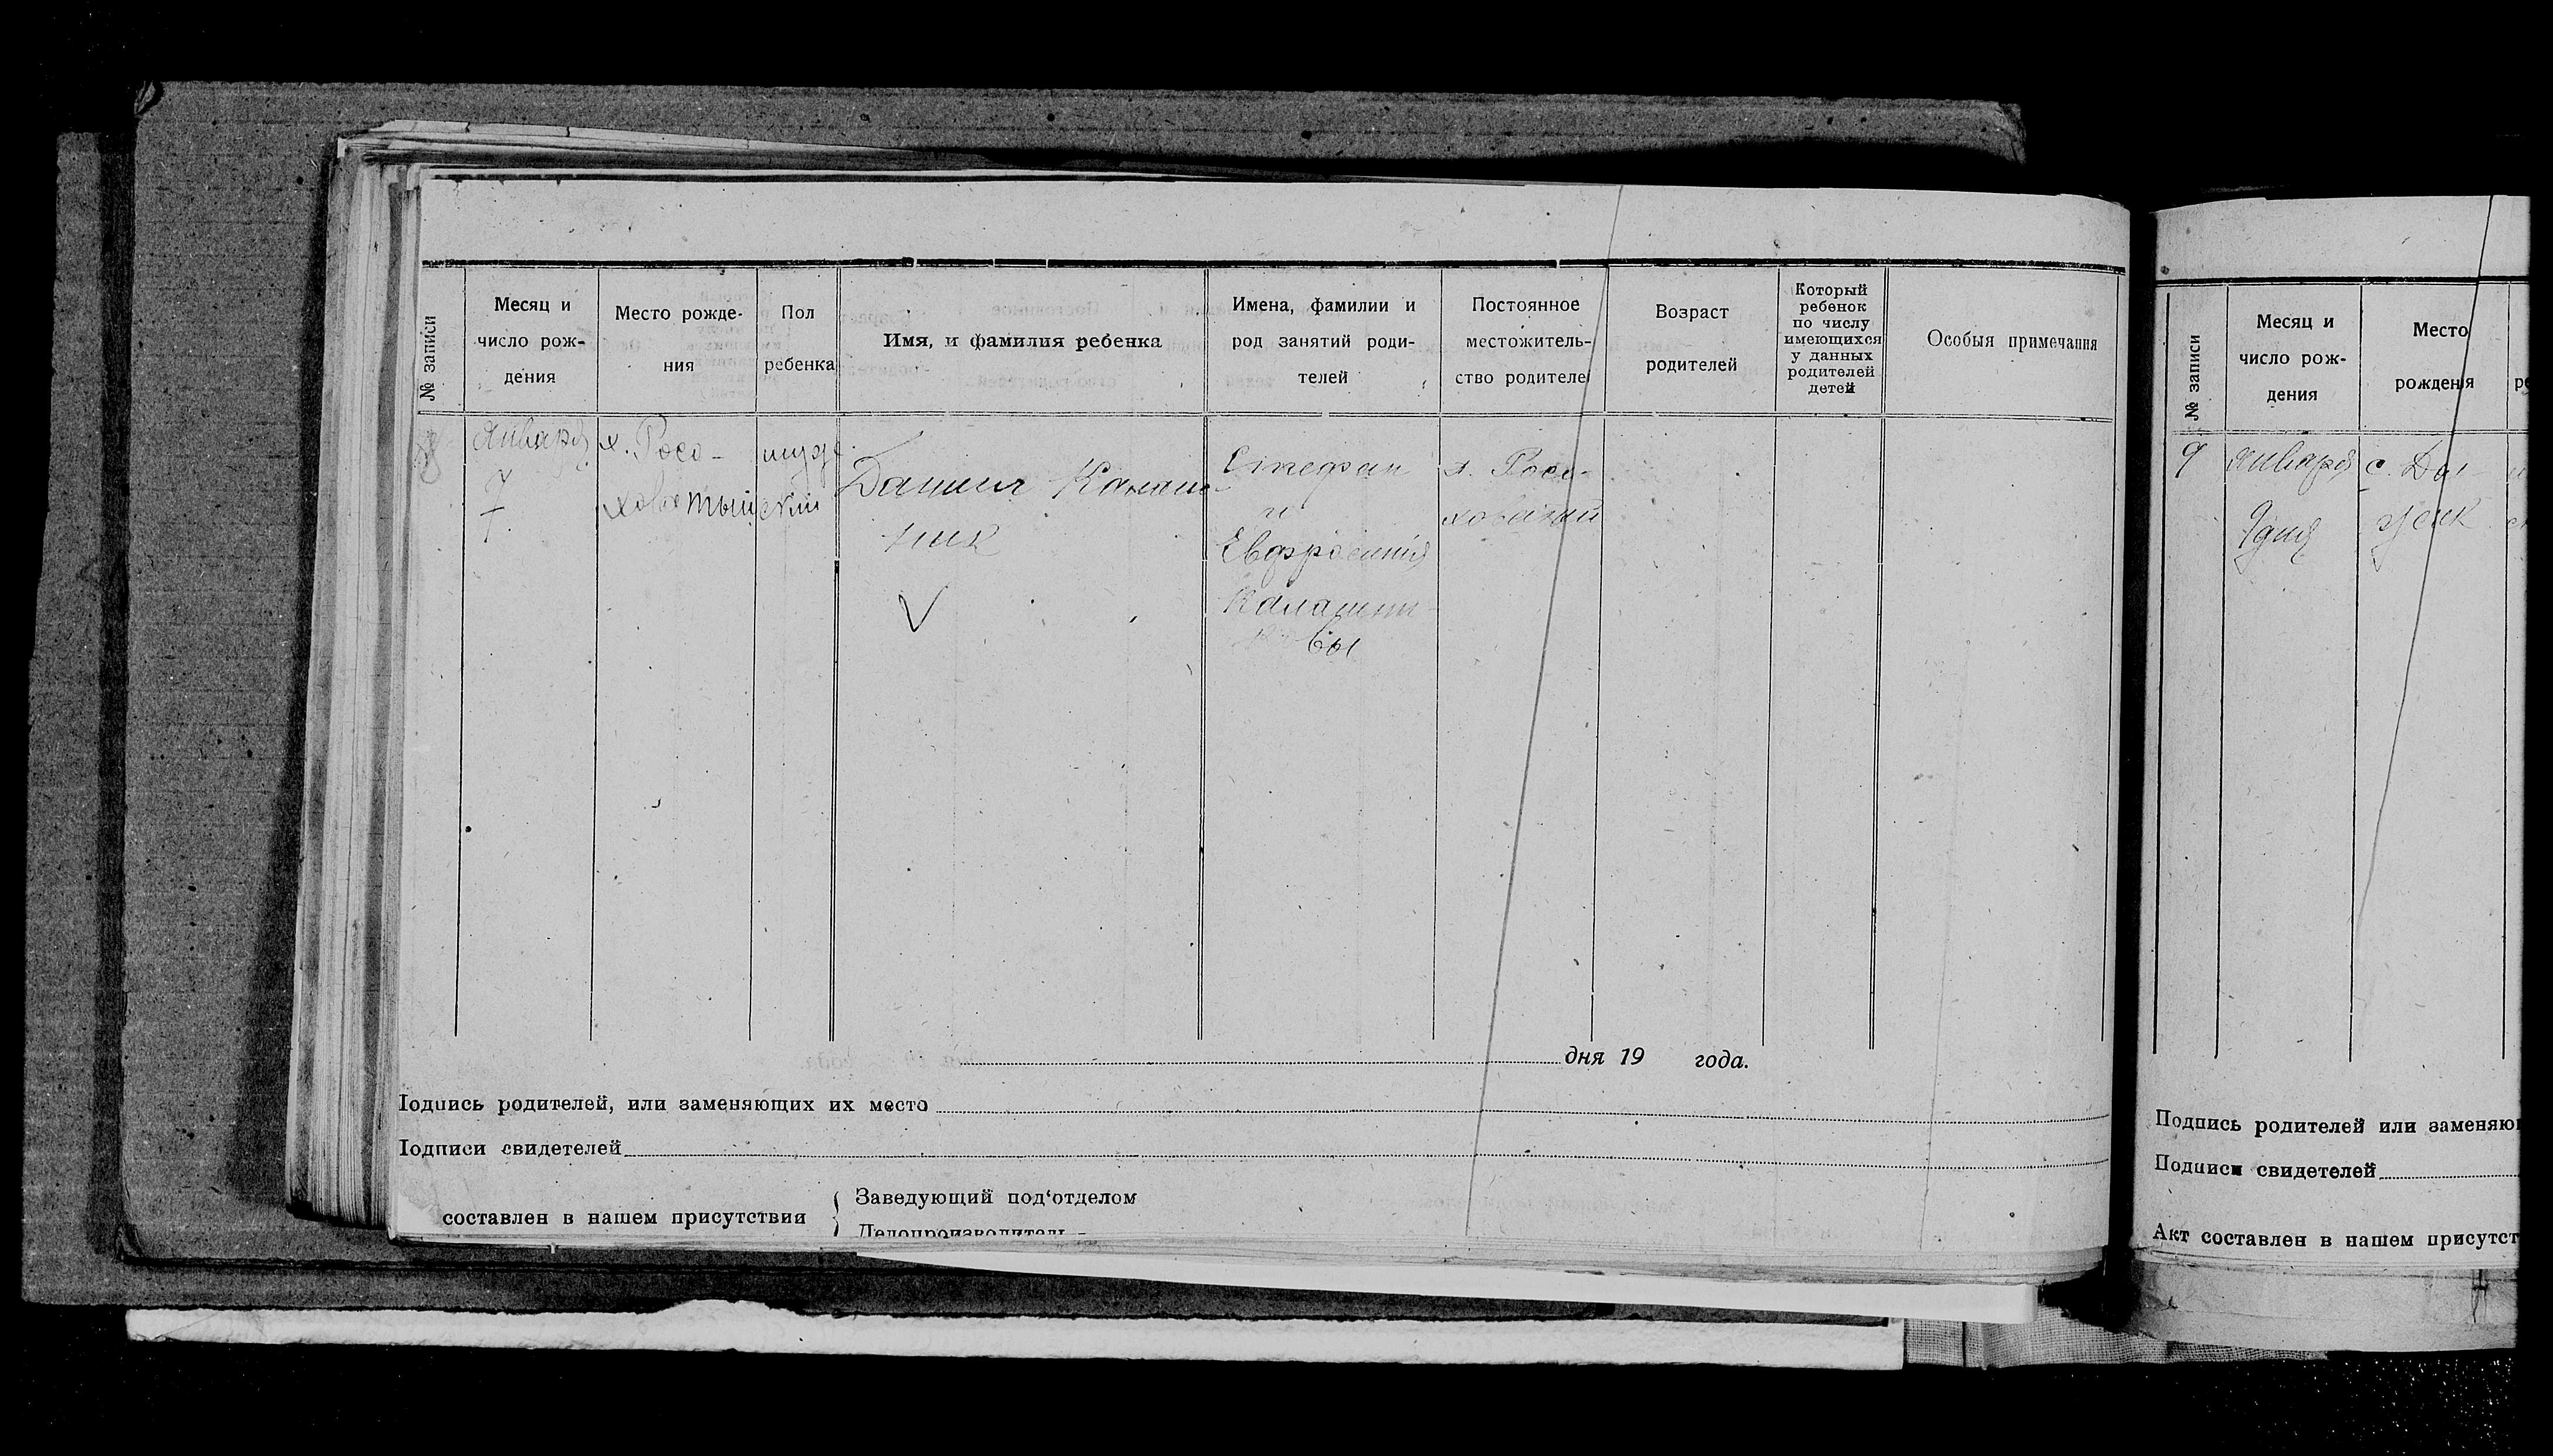 № записи
Месяц и
число рож-
дения
Место рожде-
ния
Пол
ребенка
Имя, и фамилия ребенка
Имена, фамилии и
род занятий роди-
телей
Постоянное
местожитель-
ство родителе
Возраст
родителей
Который
ребенок
по числу
имеющихся
у данных
родителей
детей
Особыя примечания
8
января
7
х. Росо-
ховатый
муж
ский
Даниил
ник
Стефан
и
Евфросиния
Калашни-
ковы
х. Росо-
ховатый
дня 19 года.
Iодпись родителей, или заменяющих их место
Iодписи свидетелей
составлен в нашем присутствии
Заведующий под‘отделом
Делопроизводитель
№ записи
Месяц и
число рож-
дения
Место
рождения
ре
9
января
9 дня
с.
Подпись родителей или заменяю
Подписи свидетелей
Акт составлен в нашем присутст